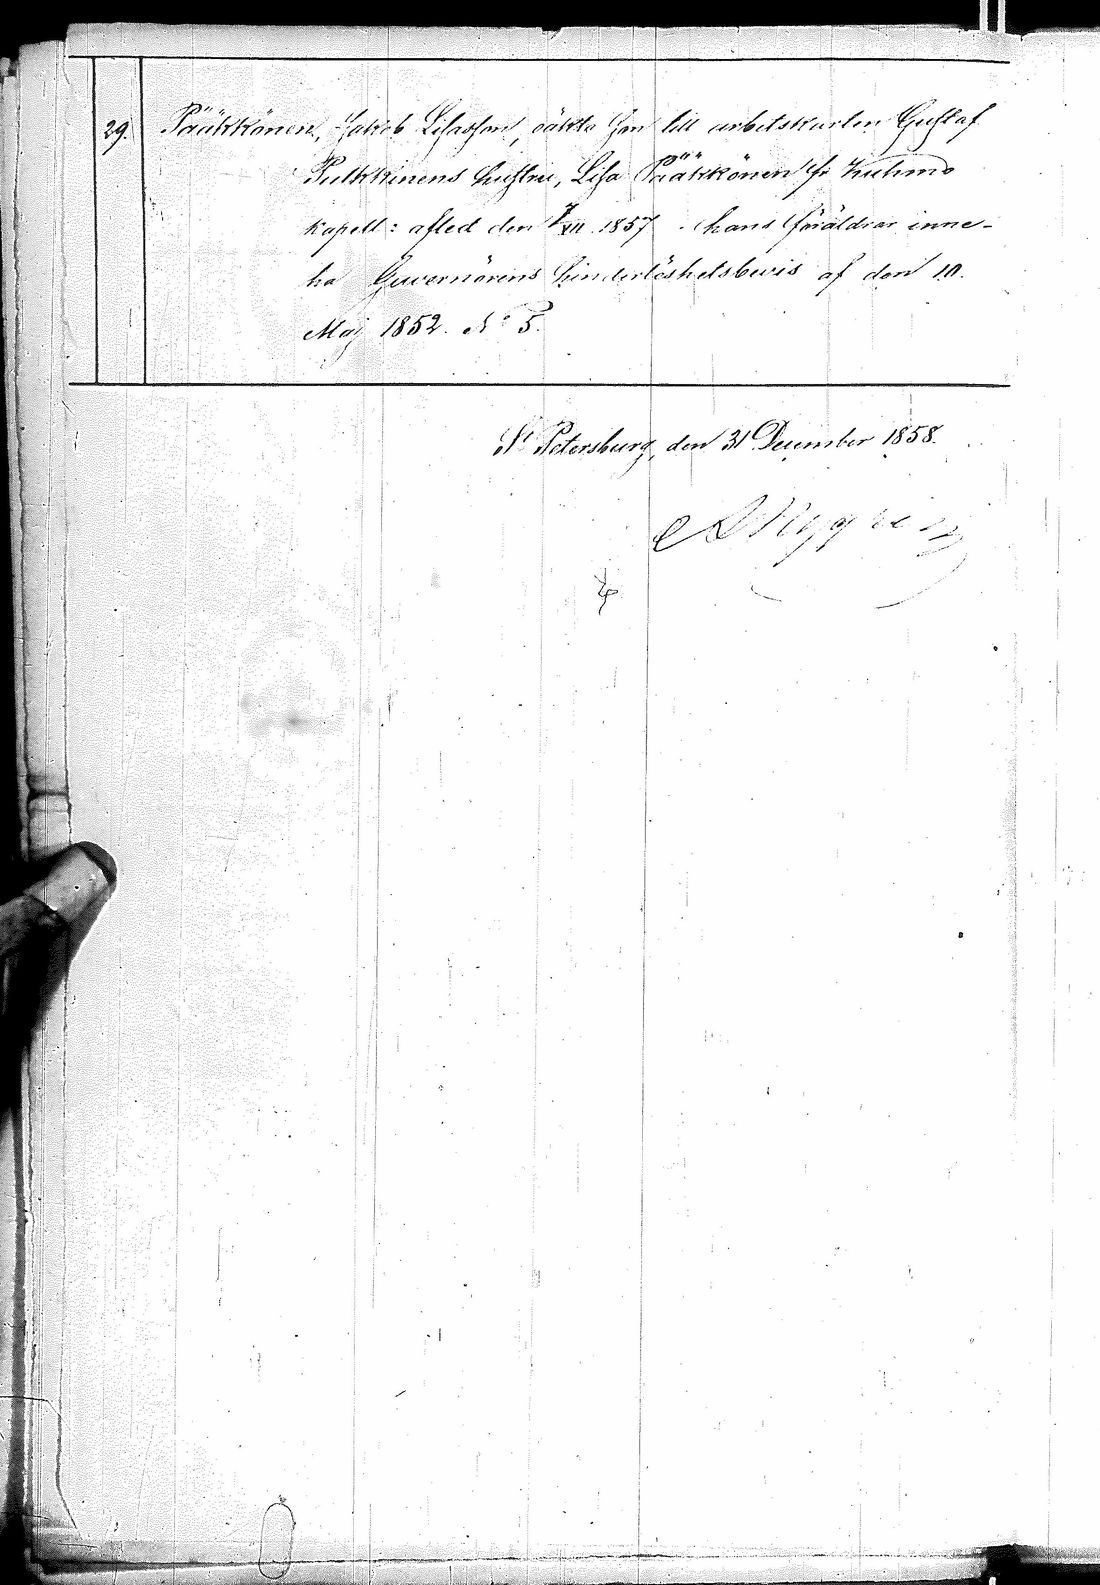 29. Pääkkönen, Jakob Lisasson, oäkta son till arbetskarlen Gustaf
Pulkkinens hustru, Lisa Pääkkönen fr Kuhmo
kapell: afled den 7/XII 1857. hans föräldrar inne-
ha Guvernörens hinderlöshetsbevis af den 10.
Maj 1852. No 5.
St Petersburg, den 31 December 1858.
A Nygren